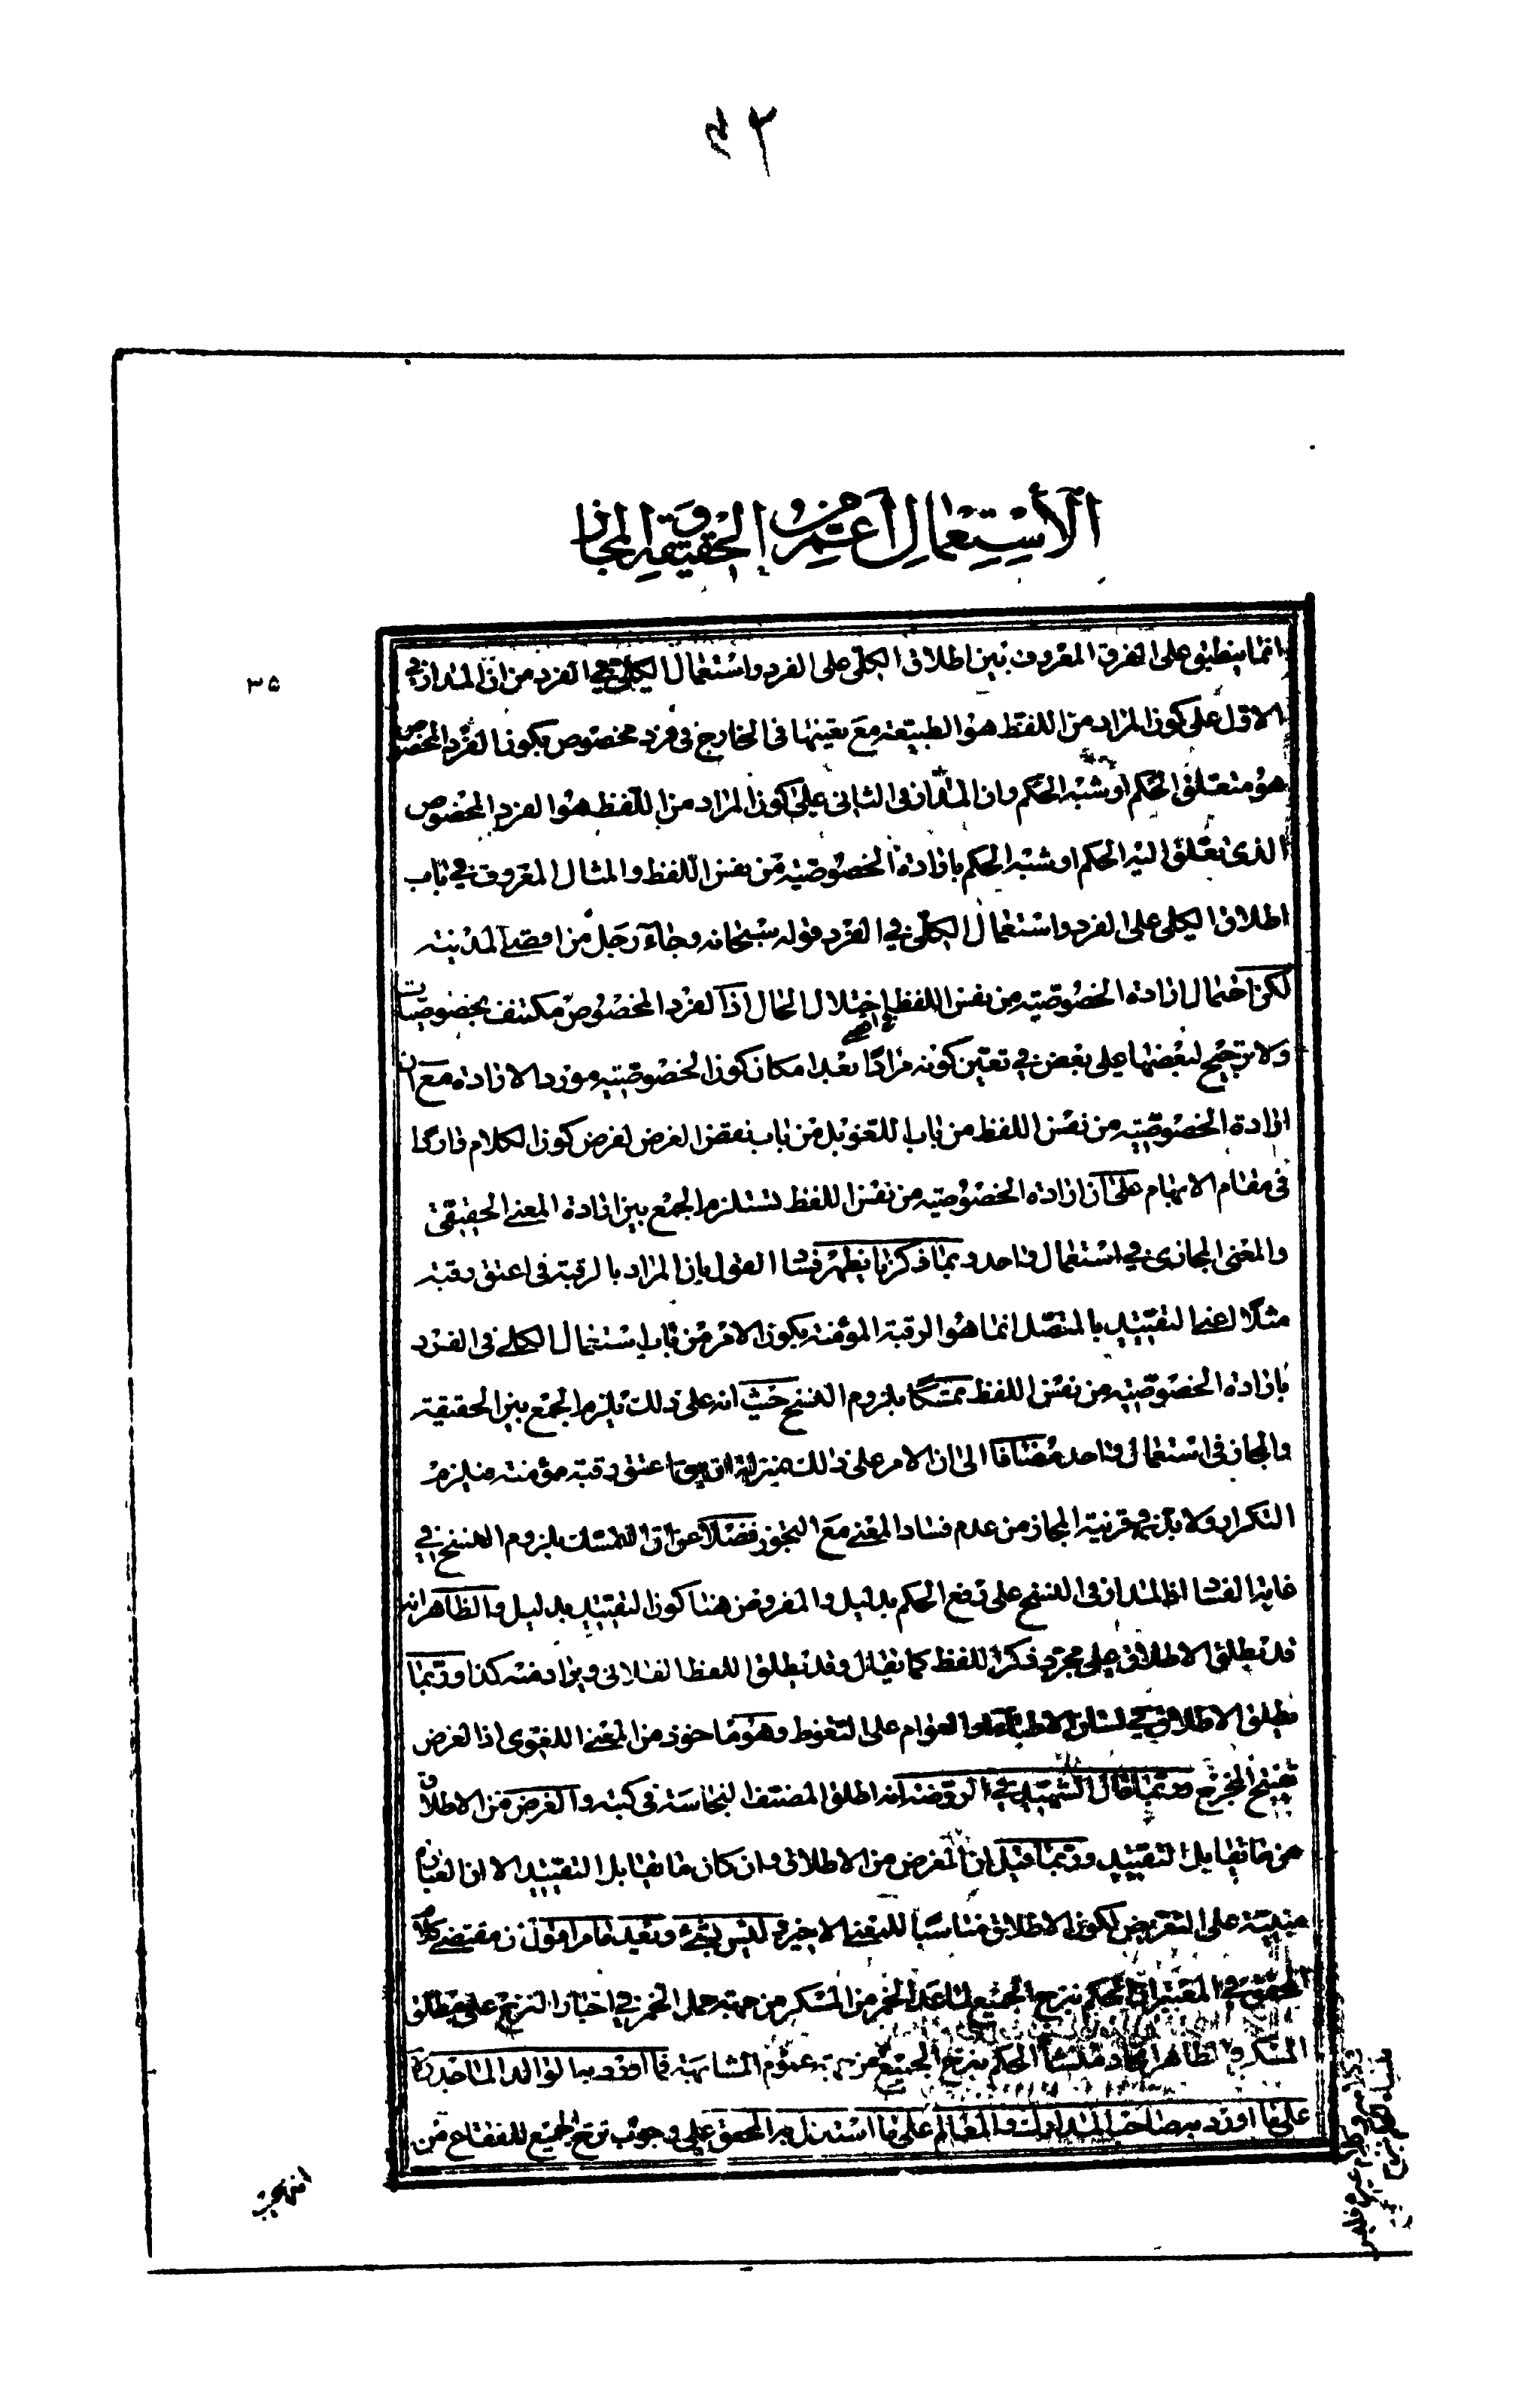 الاستعمال اعم من الحقيقة و المجاز
۳۵
انما ينطبق على الفرق المعروف بين اطلاق الكلى على الفرد واستعمال الكلى فى الفرد من ان المدار فى
الاول على كون المراد من اللفظ هو الطبيعة مع تعينها فى الخارج فى فرد مخصوص بكون الفرد المخصوص
هو متعلق الحكم او شبه الحكم وان المدار فى الثانى على كون المراد من اللفظ هو الفرد المخصوص
الذى تعلق اليه الحكم او شبه الحكم بارادة الخصوصية من نفس اللفظ والمثال المعروف فى باب
اطلاق الكلى على الفرد واستعمال الكلى فى الفرد قوله سبحانه وجاء رجل من اقصى المدينة
لكن احتمال ارادة الخصوصية من نفس اللفظ اختلال الحال اذ الفرد المخصوص مكتنف بخصوصيات
ولا ترجيح لبعضها على بعض فى تعين كونه مرادا بعد امكان كون الخصوصية مورد الارادة مع ان
ارادة الخصوصية من نفس اللفظ من باب اللغو بل من باب نقض الغرض لفرض كون الكلام واردا
فى مقام الابهام على ان ارادة الخصوصية من نفس اللفظ تستلزم الجمع بين ارادة المعنى الحقيقى
والمعنى المجازى فى استعمال واحد وبما ذكرنا يظهر فساد القول بان المراد بالرقبة فى اعتق رقبة
مثلا اعنى التقييد بالمنفصل انما هو الرقبة المؤمنة بكون الامر من باب استعمال الكلى فى الفرد
بارادة الخصوصية من نفس اللفظ تمسكا بلزوم النسخ حيث انه على ذلك يلزم الجمع بين الحقيقة
والمجاز فى استعمال واحد مضافا الى ان الامر على ذلك بمنزلة ان يق اعتق رقبة مؤمنة فيلزم
التكرار ولا بد فى قرينة المجاز من عدم فساد المعنى مع التجوز فضلا عن ان التمسك بلزوم النسخ فى
غاية الفساد اذ المدار فى النسخ على رفع الحكم بدليل والمفروض هنا كون التقييد بدليل والظاهر انه
قد يطلق الاطلاق على مجرد ذكر اللفظ كما يقال وقد يطلق اللفظ الفلانى ويراد منه كذا وربما
يطلق الاطلاق فى لسان الاطباء بل العوام على التغوط وهو ماخوذ من المعنى اللغوى اذ الغرض
تفتيح المخرج وربما قال الشهيد فى الروضة انه اطلق المصنف النجاسة فى كتبه والغرض من الاطلاق
هو ما يقابل التقييد وربما قيل ان الغرض من الاطلاق وان كان ما يقابل التقييد الا ان العبارة
مبنية على التعريض لكون الاطلاق مناسبا للمعنى الاخير وليس بشىء وبعد ما مر اقول ان مقتضى كلام
المحقق فى المعتبر ان الحكم بنزح الجميع لما عدا الخمر من المسكر من جهة حمل الخمر فى اخبار النزح على مطلق
المسكر و الظاهر منشأ الحكم بنزح الجميع من جهة عموم المشابهة فما اورد به الوالد الماجد ره
على ما اورد به صاحب المدارك والمعالم على ما استدل به المحقق على وجوب نزح الجميع للفقاع من
انه خمر